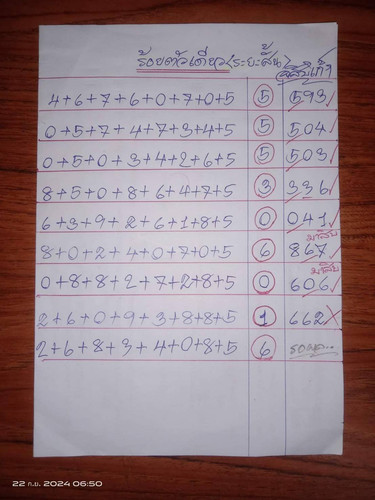 ร้อยตัวเดียว(ระยะสั้น)
4+6+7+6+0+7+0+5 5 593✓
0+5+7+4+7+3+4+5 5 504✓
0+5+0+3+4+2+6+5 5 503✓
8+5+0+8+6+4+7+5 3 336✓
6+3+9+2+6+1+8+5 0 041✓
8+0+2+4+0+7+0+5 6 867✓
0+8+8+2+7+2+8+5 0 606✓
2+6+0+9+3+8+8+5 1 662✗
2+6+8+3+4+0+8+5 6 รอผล...
22 ก.ย. 2024 06:50